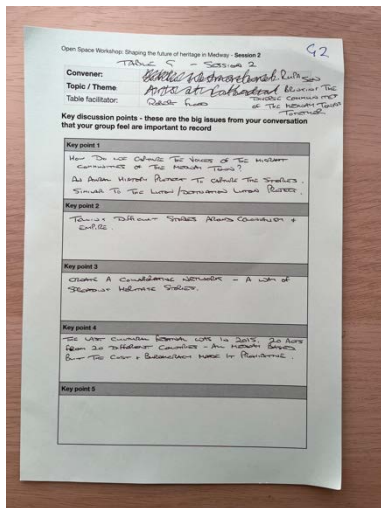 Open Space Workshop: Shaping the future of heritage in Medway - Session 2
G2
TABLE G - SESSION 2
Convener: RUPA SEN
Topic / Theme Arts at Cathedral BRINGING THE
DIVERSE COMMUNITIES
OF THE MEDWAY TOWNS
TOGETHER
Table facilitator:
Key discussion points - these are the big issues from your conversation
that your group feel are important to record
Key point 1
HOW DO WE CAPTURE THE VOICES OF THE MIGRANT
COMMUNITIES OF THE MEDWAY TOWNS?
AN AURAL HISTORY PROJECT TO CAPTURE THE STORIES.
SIMILAR TO THE LUTON / DESTINATION LUTON PROJECT.
Key point 2
TELLING DIFFICULT STORIES AROUND COLONIALISM +
EMPIRE.
Key point 3
CREATE A COLLABORATIVE NETWORK - A WAY OF
SPREADING HERITAGE STORIES.
Key point 4
THE LAST CULTURAL FESTIVAL WAS IN 2015. 20 ACTS
FROM 20 DIFFERENT COUNTRIES - ALL MEDWAY BASED
BUT THE COST + BUREAUCRACY MADE IT PROHIBITIVE.
Key point 5